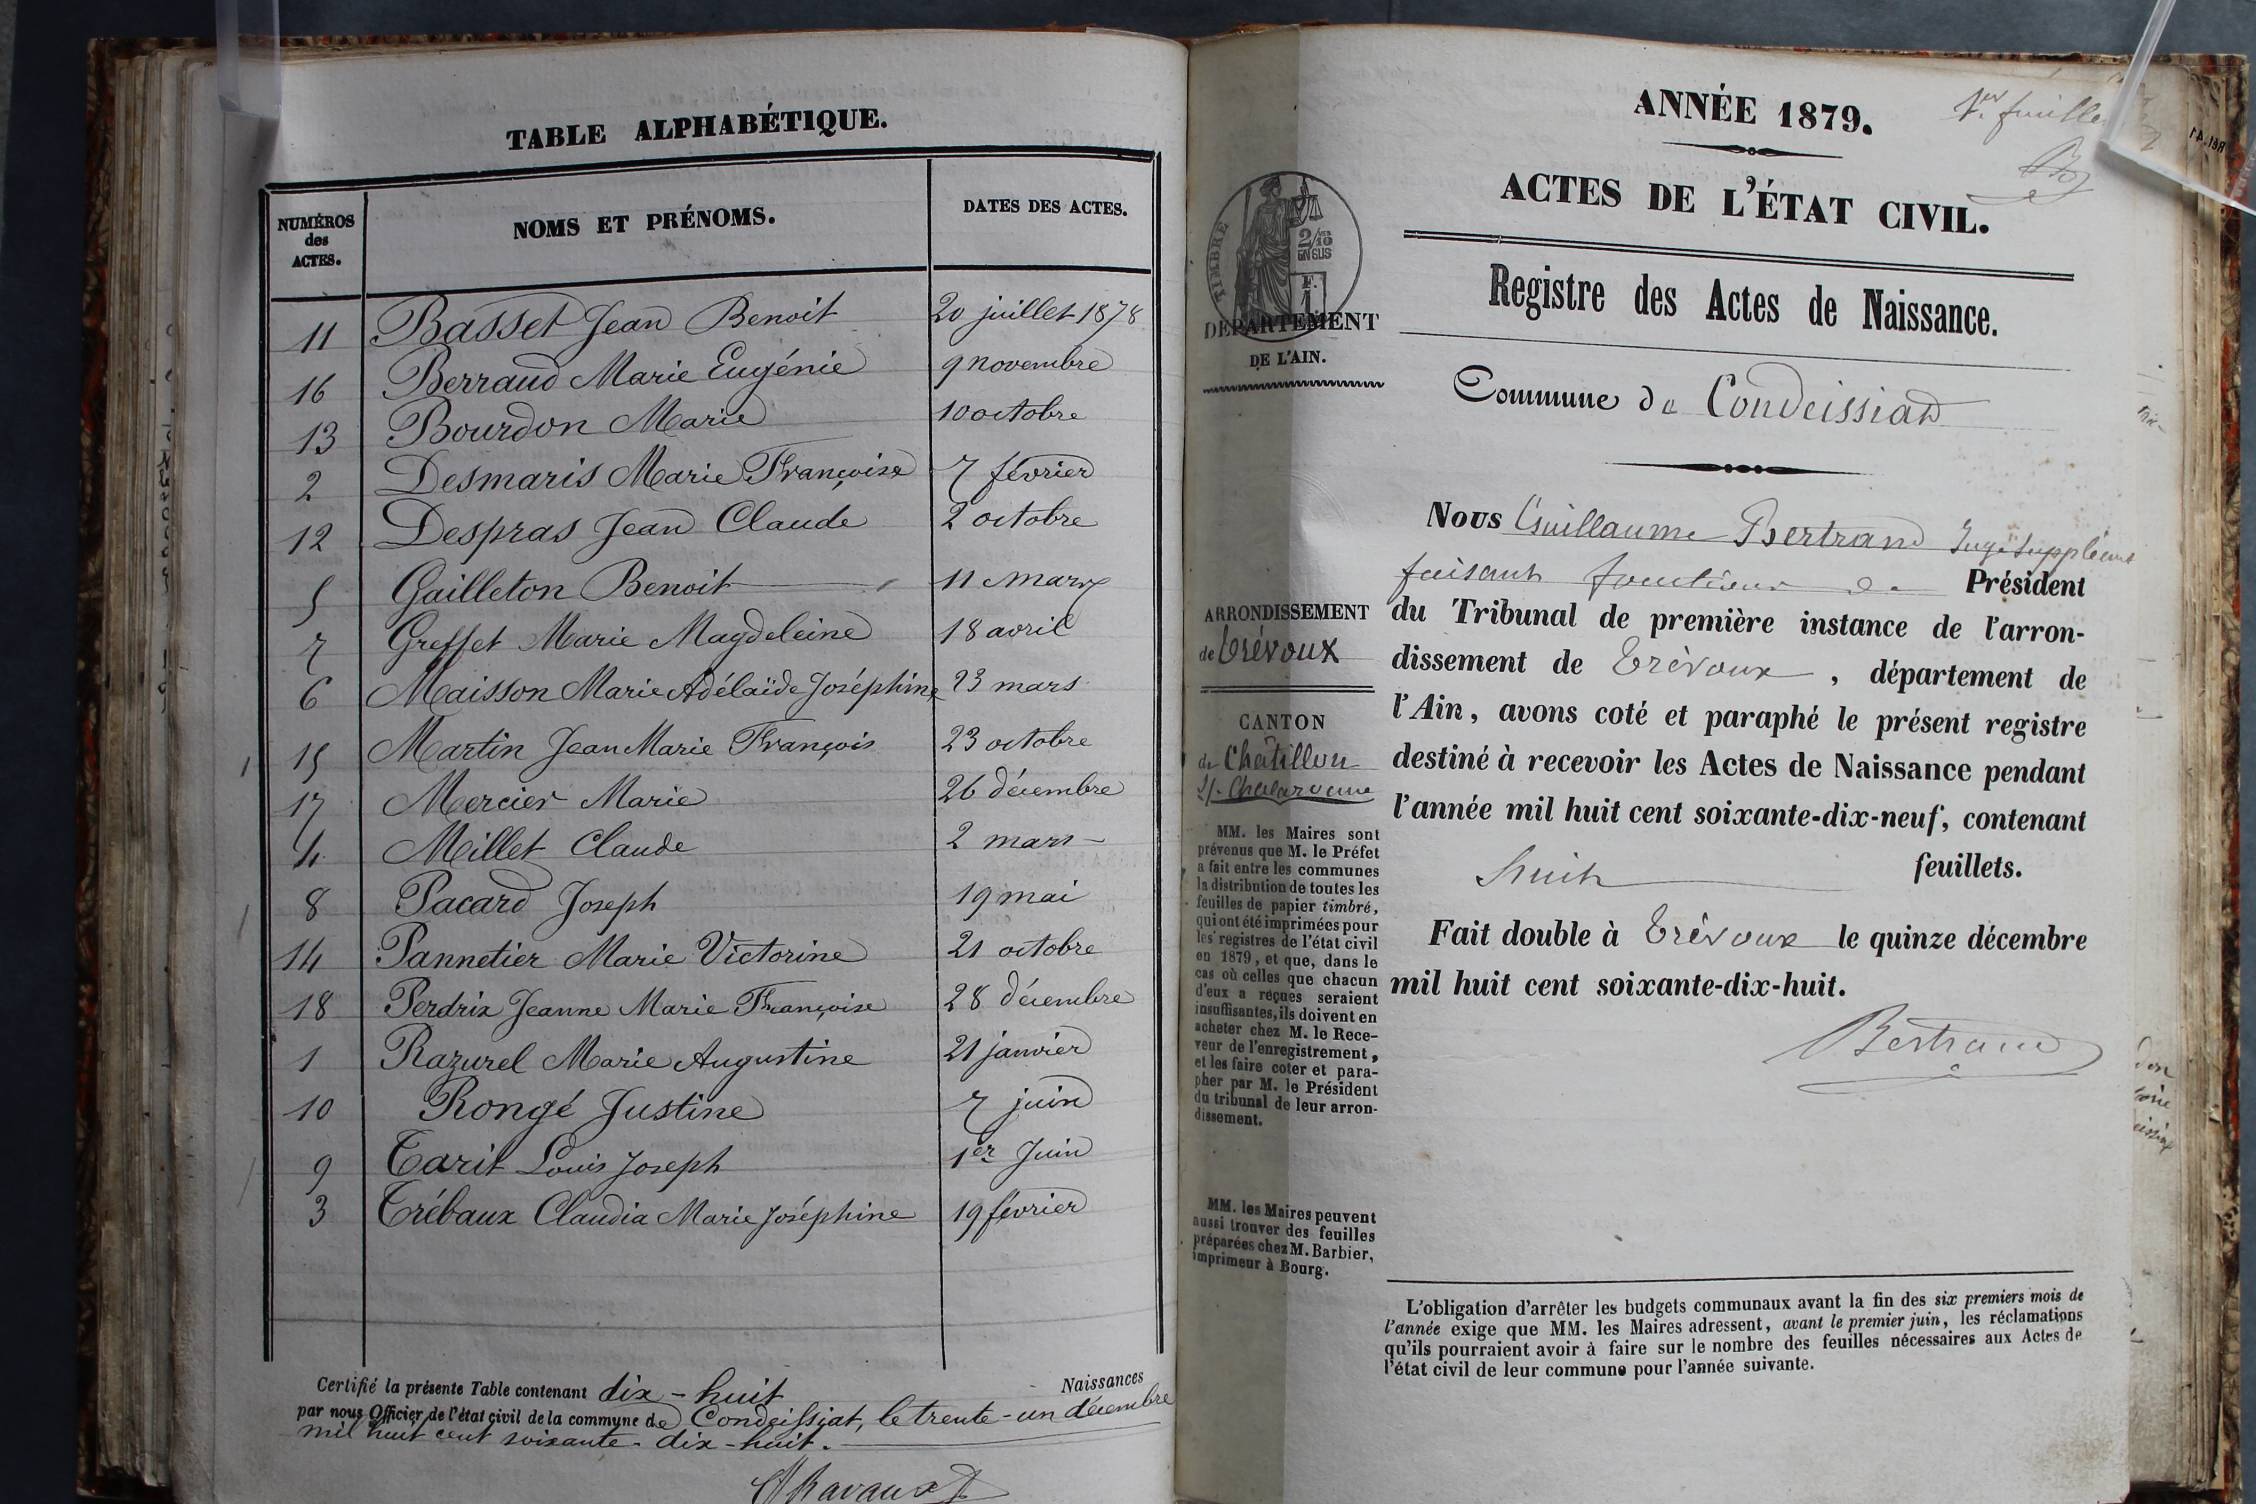 TABLE ALPHABÉTIQUE.
NUMÉROS des ACTES. NOMS ET PRÉNOMS. DATES DES ACTES.
11 Basset Jean Benoit 20 juillet 1878
16 Berraud Marie Eugénie 9 novembre
13 Bourdon Marie 10 octobre
2 Desmaris Marie Françoise 7 février
12 Despras Jean Claude 2 octobre
5 Gailleton Benoit 11 mars
7 Greffet Marie Magdeleine 18 avril
6 Maisson Marie Adélaïde Joséphine 23 mars
15 Martin Jean Marie François 23 octobre
17 Mercier Marie 26 décembre
4 Millet Claude 2 mars
8 Pacard Joseph 19 mai
14 Pannetier Marie Victorine 21 octobre
18 Perdrix Jeanne Marie Françoise 28 décembre
1 Razurel Marie Augustine 21 janvier
10 Rongé Justine 7 juin
9 Tarit Louis Joseph 1er Juin
3 Trébaux Claudia Marie Joséphine 19 février
Certifié la présente Table contenant dix-huit Naissances
par nous Officier de l'état civil de la commune de Condeissiat, le trente-un décembre
mil huit cent soixante-dix-huit.
1er feuillet
ANNÉE 1879.
ACTES DE L'ÉTAT CIVIL.
Registre des Actes de Naissance.
Commune de Condeissiat
TIMBRE
2/10
EN SUS
F.
1
DEPARTEMENT
DE L'AIN.
ARRONDISSEMENT
de Trévoux
CANTON
de Châtillon
s/. Chalaronne
MM. les Maires sont
prévenus que M. le Préfet
a fait entre les communes
la distribution de toutes les
feuilles de papier timbré,
qui ont été imprimées pour
les registres de l'état civil
en 1879, et que, dans le
cas où celles que chacun
d'eux a reçues seraient
insuffisantes, ils doivent en
acheter chez M. le Rece-
veur de l'enregistrement,
et les faire coter et para-
pher par M. le Président
du tribunal de leur arron-
dissement.
MM. les Maires peuvent
aussi trouver des feuilles
préparées chez M. Barbier,
imprimeur à Bourg.
Nous Guillaume Bertrand Juge suppléant
faisant fonctions de Président
du Tribunal de première instance de l'arron-
dissement de Trévoux, département de
l'Ain, avons coté et paraphé le présent registre
destiné à recevoir les Actes de Naissance pendant
l'année mil huit cent soixante-dix-neuf, contenant
huit feuillets.
Fait double à Trévoux le quinze décembre
mil huit cent soixante-dix-huit.
Bertrand
L'obligation d'arrêter les budgets communaux avant la fin des six premiers mois de
l'année exige que MM. les Maires adressent, avant le premier juin, les réclamations
qu'ils pourraient avoir à faire sur le nombre des feuilles nécessaires aux Actes de
l'état civil de leur commune pour l'année suivante.